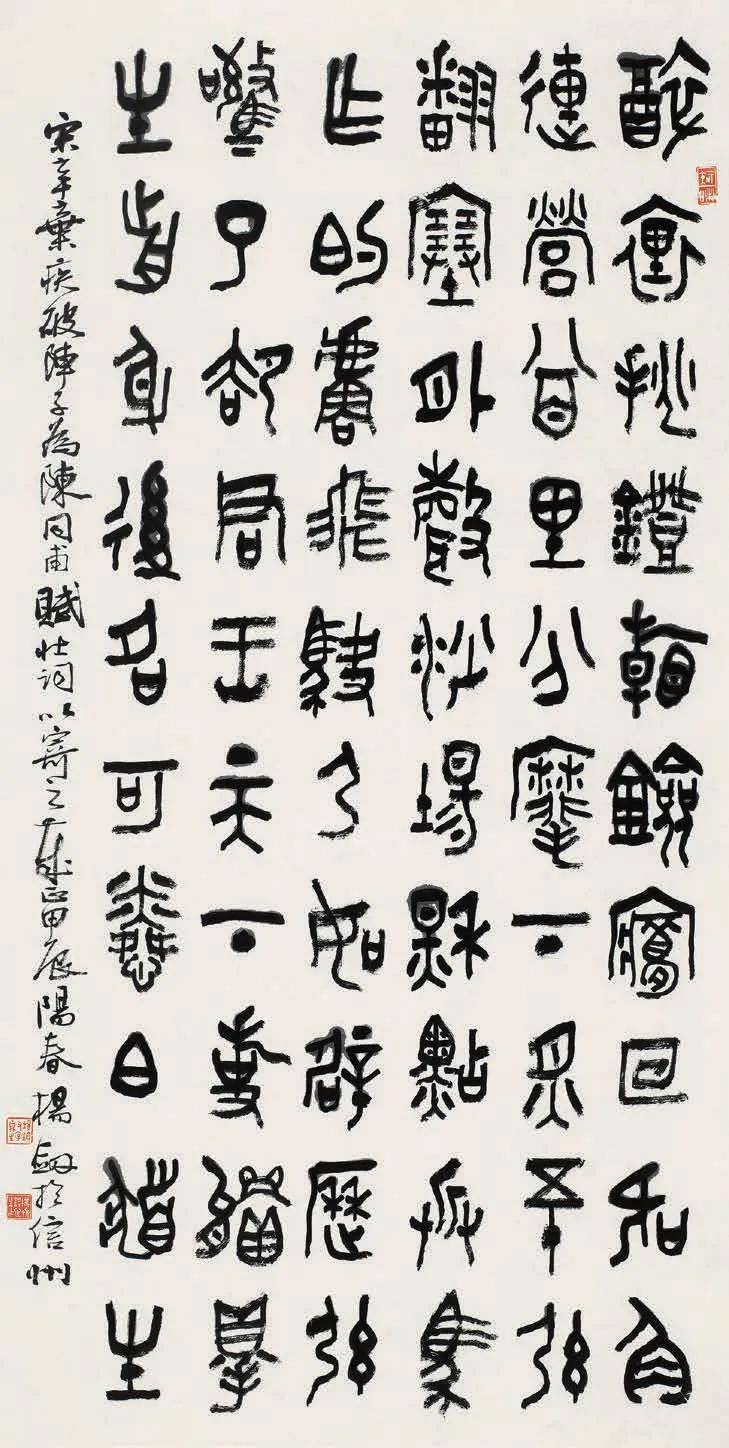 醉裏挑鐙看劍夢回吹角
連營八百里分麾下炙五十弦
翻塞外聲沙場秋點兵馬
作的盧飛快弓如霹靂弦
驚了卻君王天下事贏得
生前身後名可憐白髮生
宋辛棄疾破陣子為陳同甫賦壯詞以寄之 甲辰陽春楊劍於信州